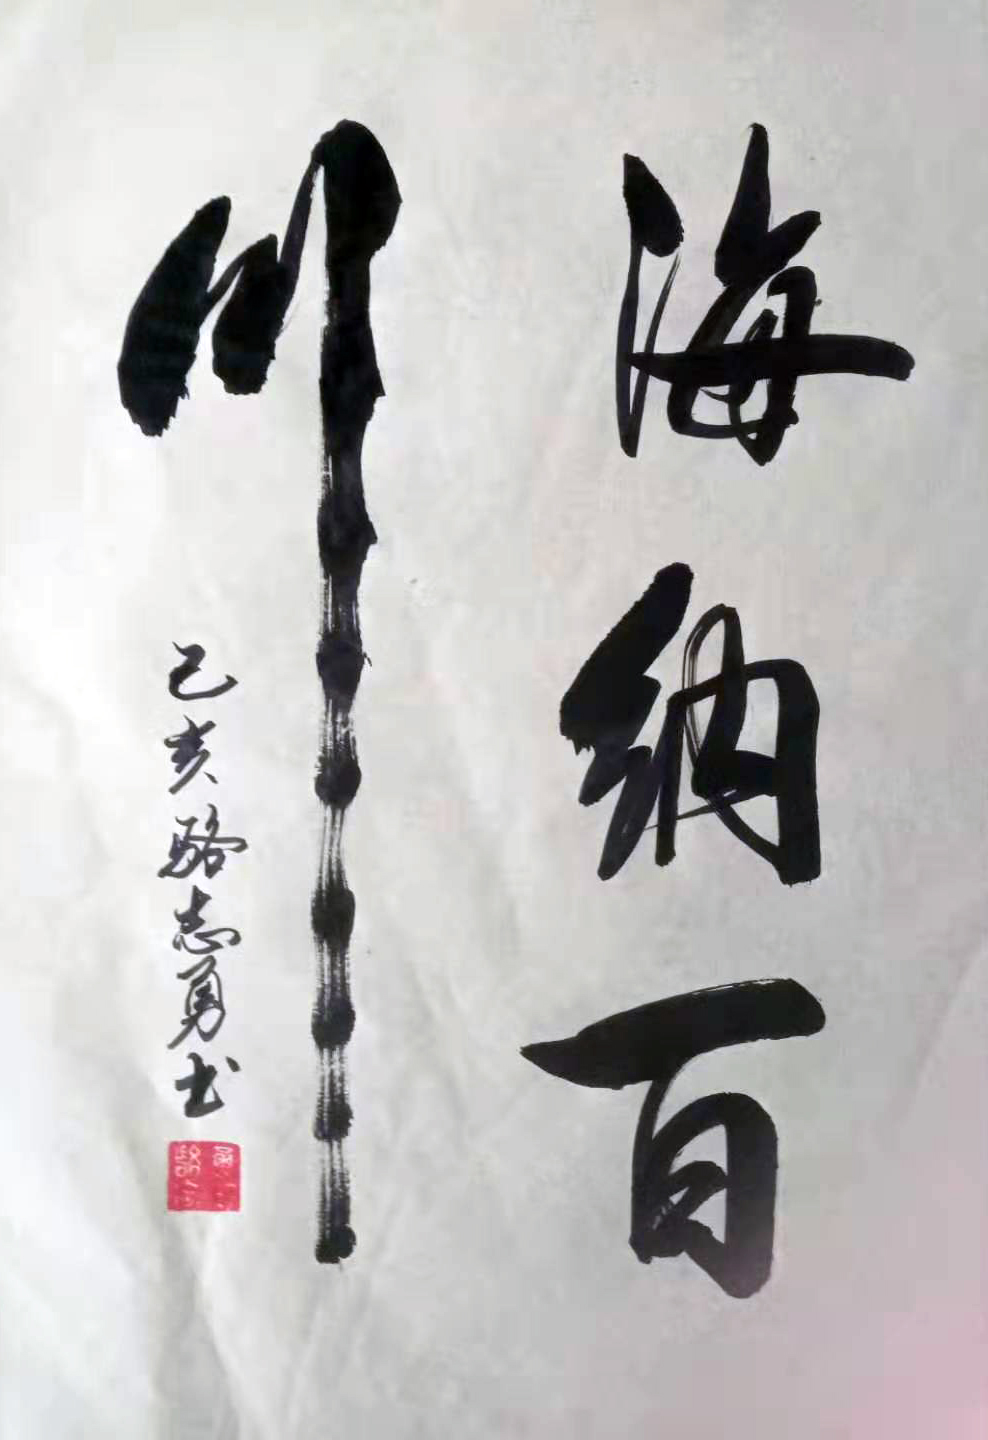 海纳百
川
己亥骆志勇书